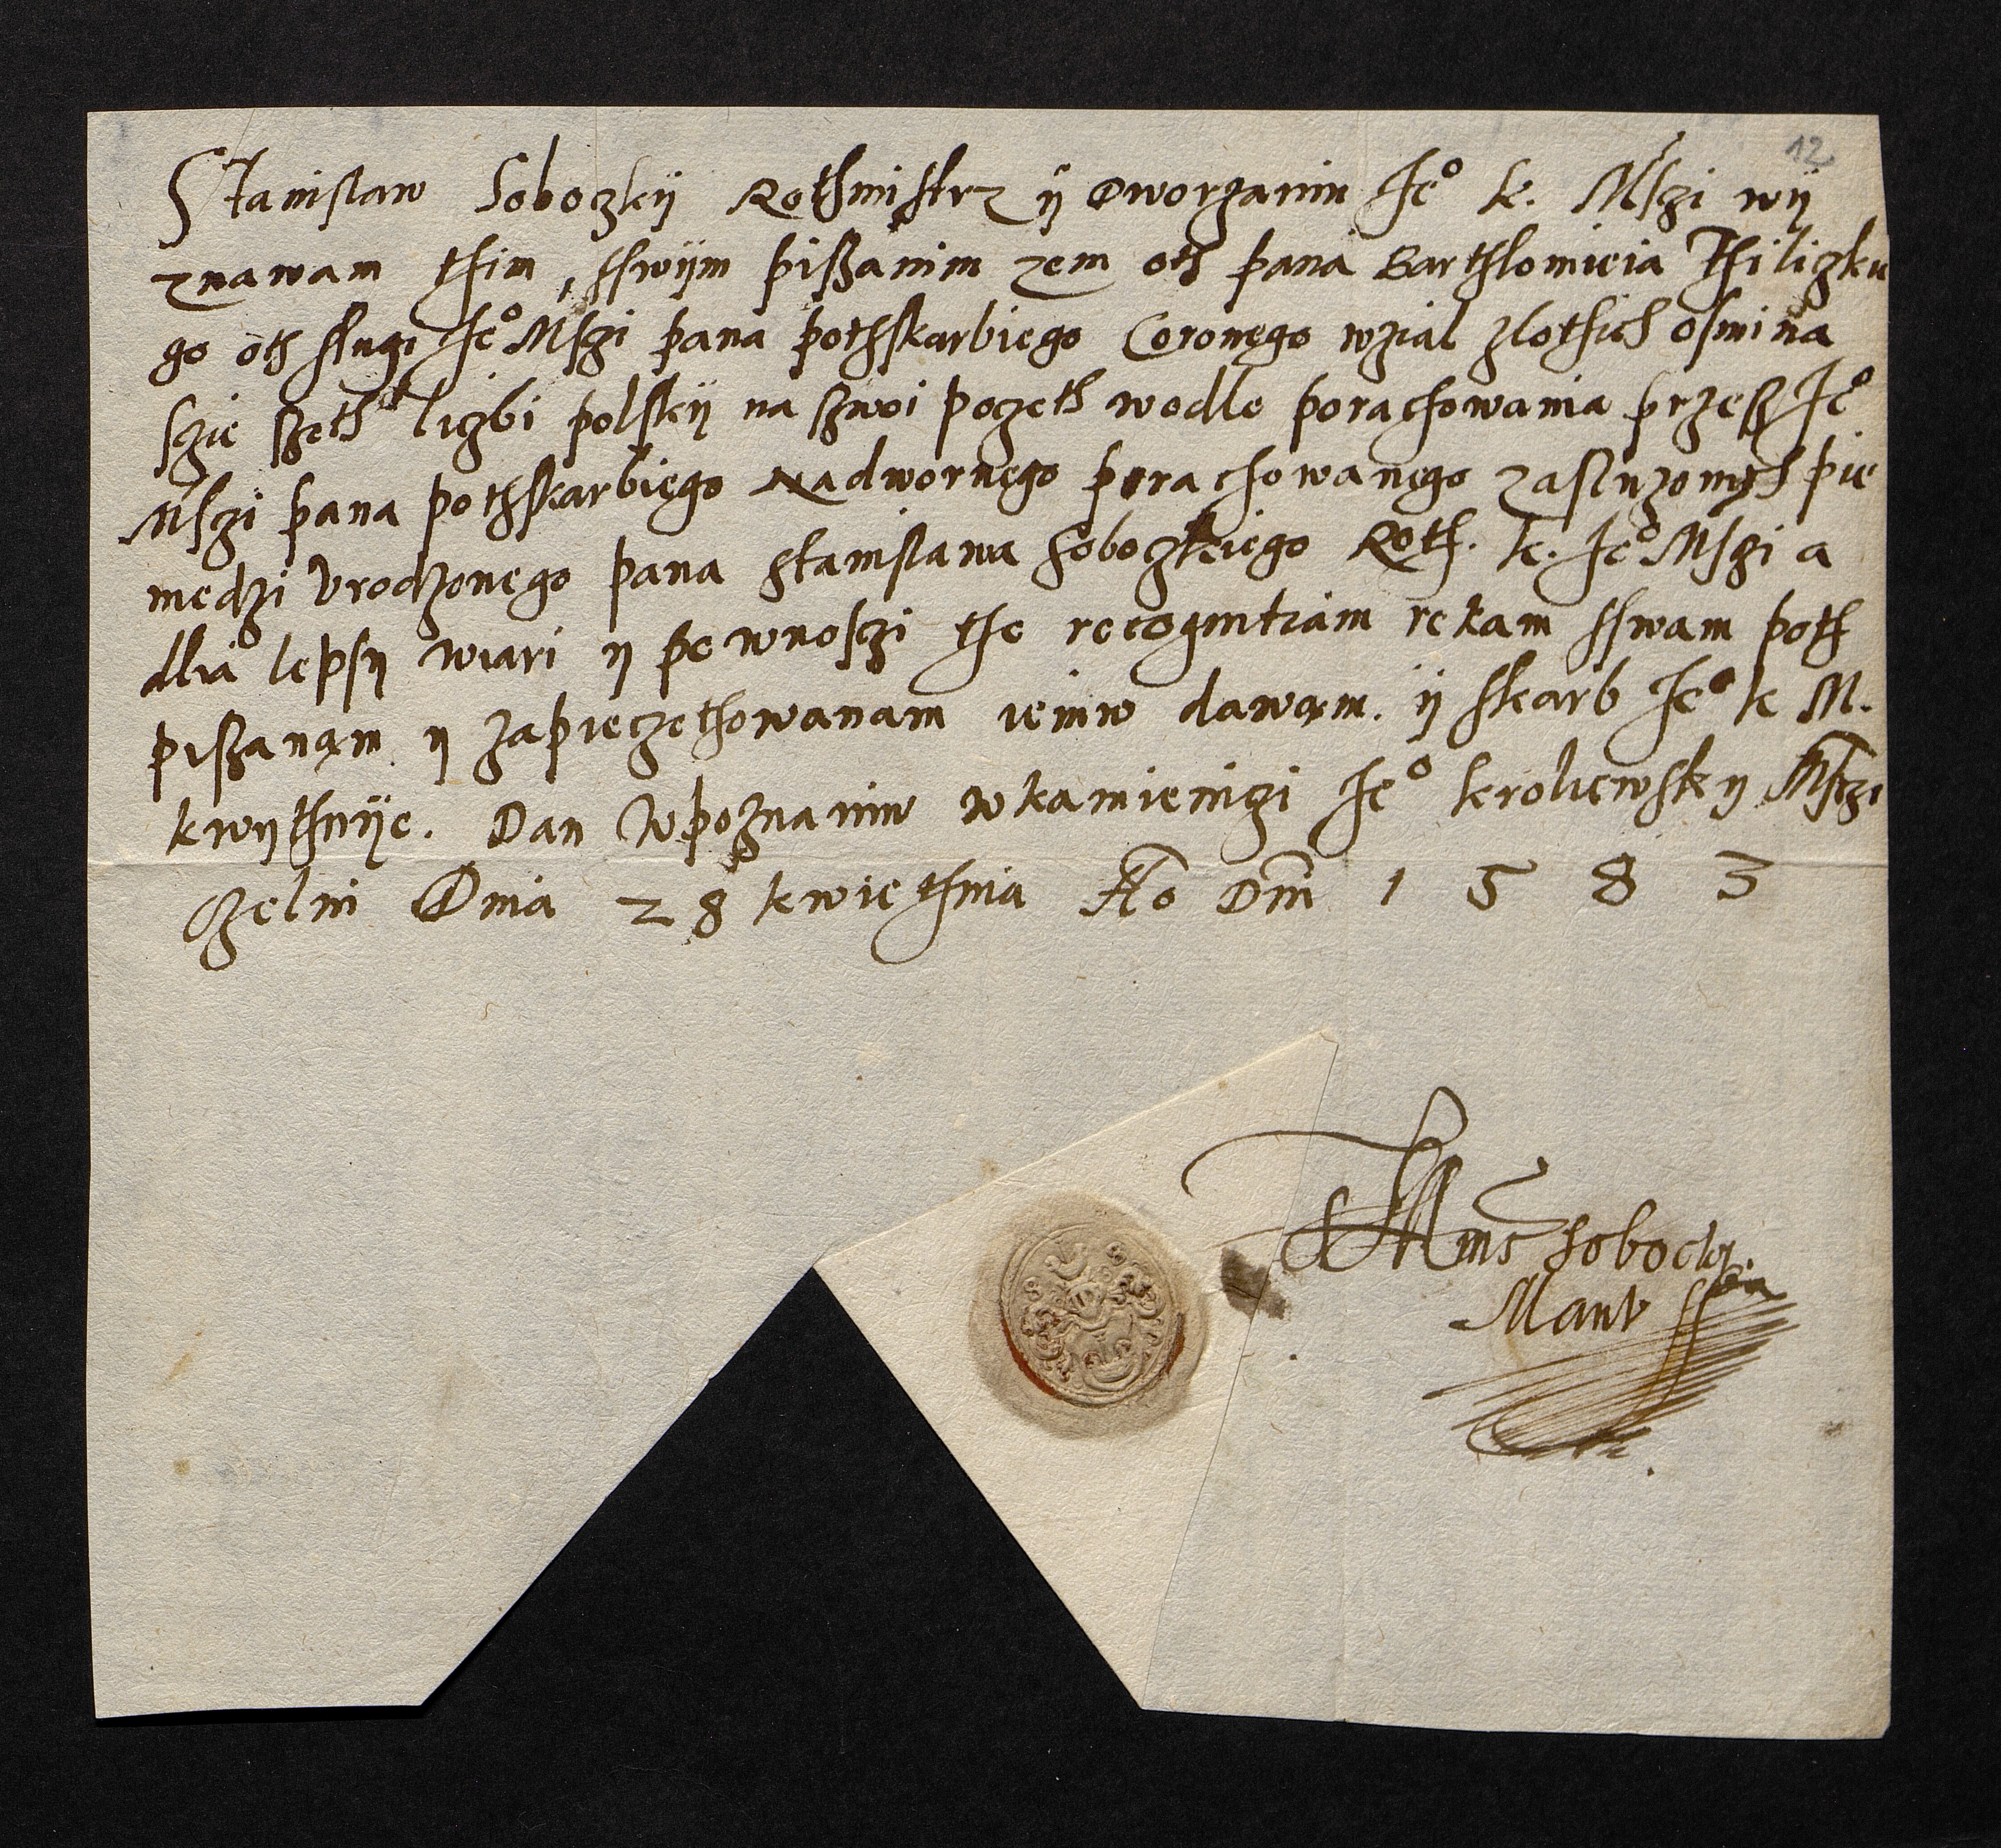 12
Stanislaw Sobozkÿ Rothmistrz ÿ Dworzanin Ie° k. Mſzi wÿ
znawam thim, sſwÿm pißanim zem oth pana Barthlomieia Thiligku
go oth slugi Ie° Mſzi pana pothskarbiego Coronęgo wzial zlothich osmina
sczie szeth ligbi polskÿ na szwoi pogeth wodle porachowania przesz Ie°
Mſzi pana pothskarbięgo Nadwornęgo porachowanęgo zasluzonych pie
niedzi Vrodzonego pana Stanislawa Sobozkiego Roth. k. Ie° Mſzi a
dlia lepsÿ wiari ÿ pewnosczi the recogmtiam rekam sſwam poth
pißanąm ÿ zapieczethowanam iemw dawam. ÿ skarb Ie° k M.
kwythuÿe. Dan Wpoznaniw wkamienigi Ie° kroliewskÿ Mſczi
Dnia 28 kwiethnia Ao Dm̄ 1583
Sobocky
Manu ſſua